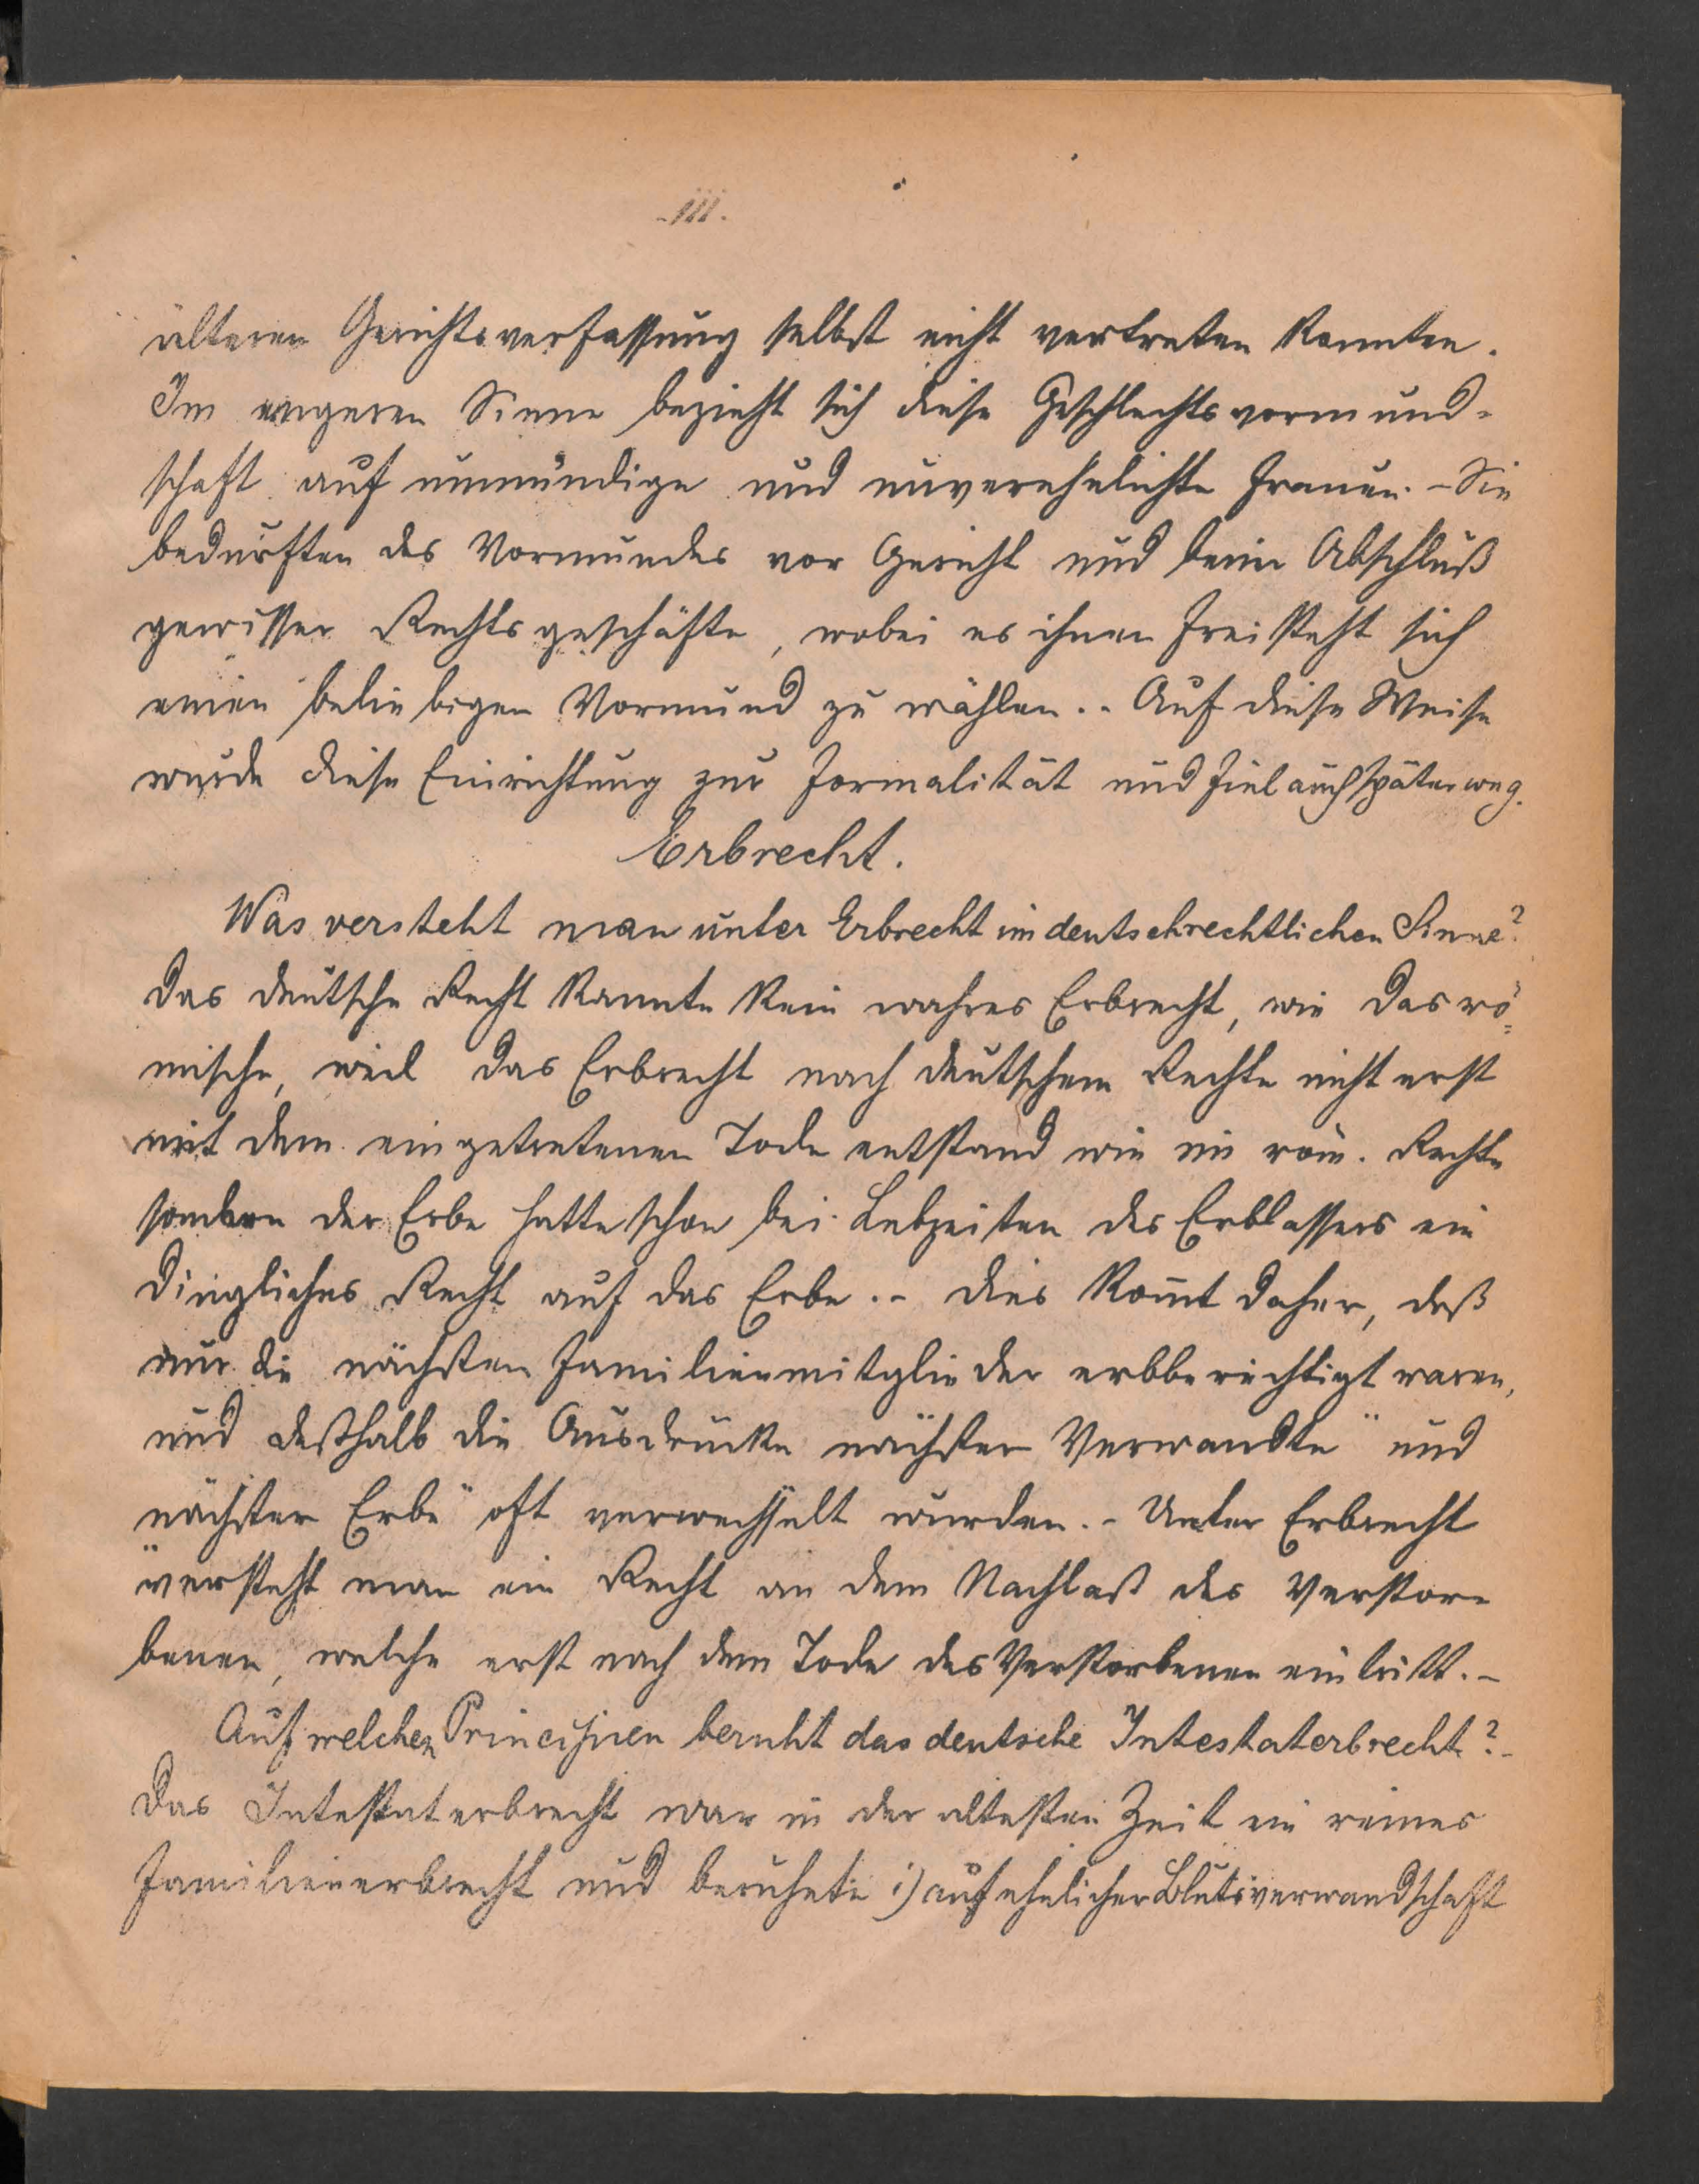 111.
älteren Gerichtsverfassung selbst nicht vertreten konnten.
Im engeren Sinne bezieht sich diese Geschlechtsvormund-
schaft auf unmündige und unverehelichte Frauen. - Sie
bedurften des Vormundes vor Gericht und beim Abschluß
gewisser Rechtsgeschäfte, wobei es ihnen freisteht sich
einen beliebigen Vormund zu wählen. - Auf diese Weise
wurde diese Einrichtung zur Formalität und fiel auch später weg.
Erbrecht.
Was versteht man unter Erbrecht im deutschrechtlichen Sinne?
Das deutsche Recht kannte kein wahres Erbrecht, wie das rö-
mische, weil das Erbrecht nach deutschem Rechte nicht erst
mit dem eingetretenen Tode entstand wie im röm. Rechte
sondern der Erbe hatte schon bei Lebzeiten des Erblassers ein
dingliches Recht auf das Erbe. - Dies kom̄t daher, daß
nur die nächsten Familienmitglieder erbberechtigt waren,
und deßhalb die Ausdrücke nächster Verwandte" und
nächster Erbe" oft verwechselt wurden. - Unter Erbrecht
versteht man ein Recht an dem Nachlaß des Verstor-
benen, welche erst nach dem Tode des Verstorbenen eintritt. -
Auf welchen Principien beruht das deutsche Intestaterbrecht? -
Das Intestaterbrecht war in der ältesten Zeit ein reines
Familienerbrecht und beruhete 1) auf ehelicher Blutsverwandschaft